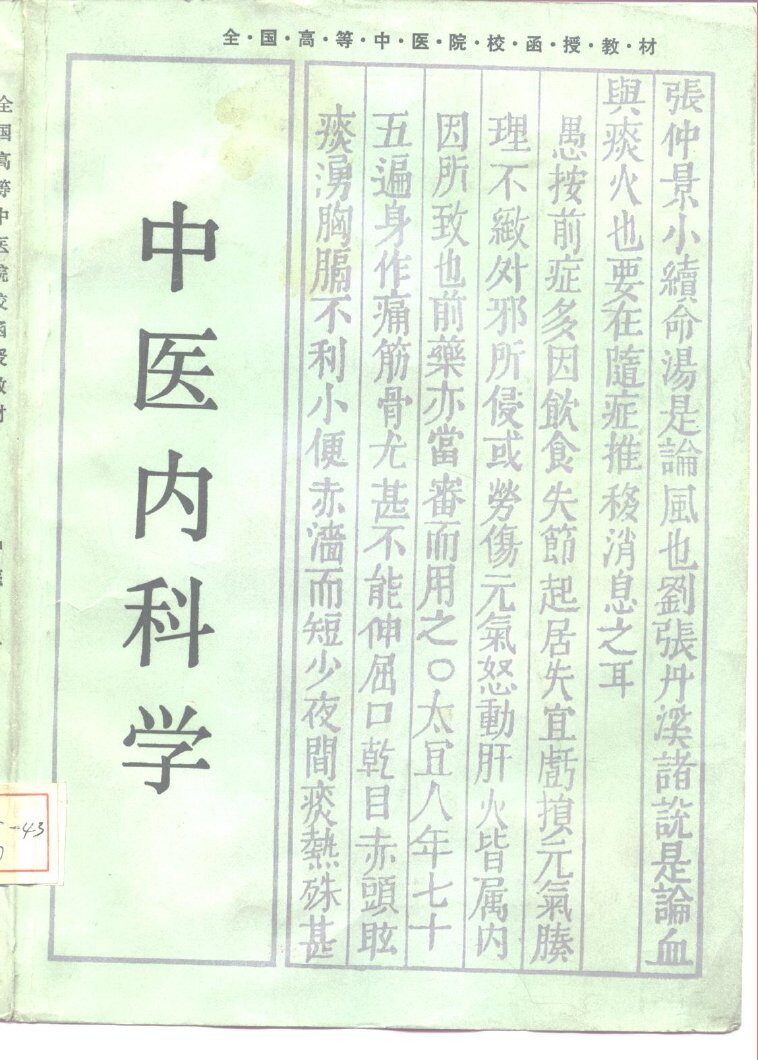 全·国·高·等·中·医·院·校·函·授·教·材
張仲景小續命湯是論風也劉張丹溪諸說是論血
與痰火也要在隨症推移消息之耳
愚按前症多因飲食失節起居失宜虧損元氣腠
理不緻外邪所侵或勞傷元氣怒動肝火皆属内
因所致也前藥亦當審而用之○太宜人年七十
五遍身作痛筋骨尤甚不能伸屈口乾目赤頭眩
痰湧胸膈不利小便赤濇而短少夜間痰熱殊甚
中医内科学
全国高等中医院校函授教材
-43